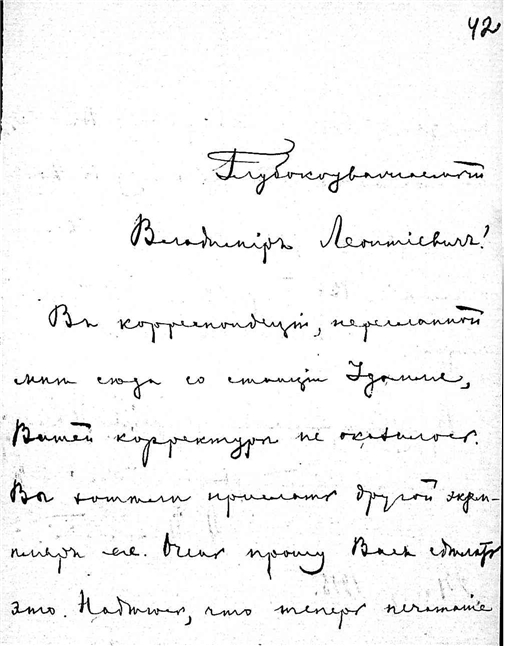 42
Глубокоуважаемый
Владимiръ Леонтiевичъ!
Въ корреспонденцiи, пересланной
мнѣ сюда со станцiи Удомля,
Вашей корректуры не оказалось.
Вы хотѣли прислать другой экзем-
пляръ ея. Очень прошу Васъ сдѣлать
это. Надѣюсь, что теперь печатанiе